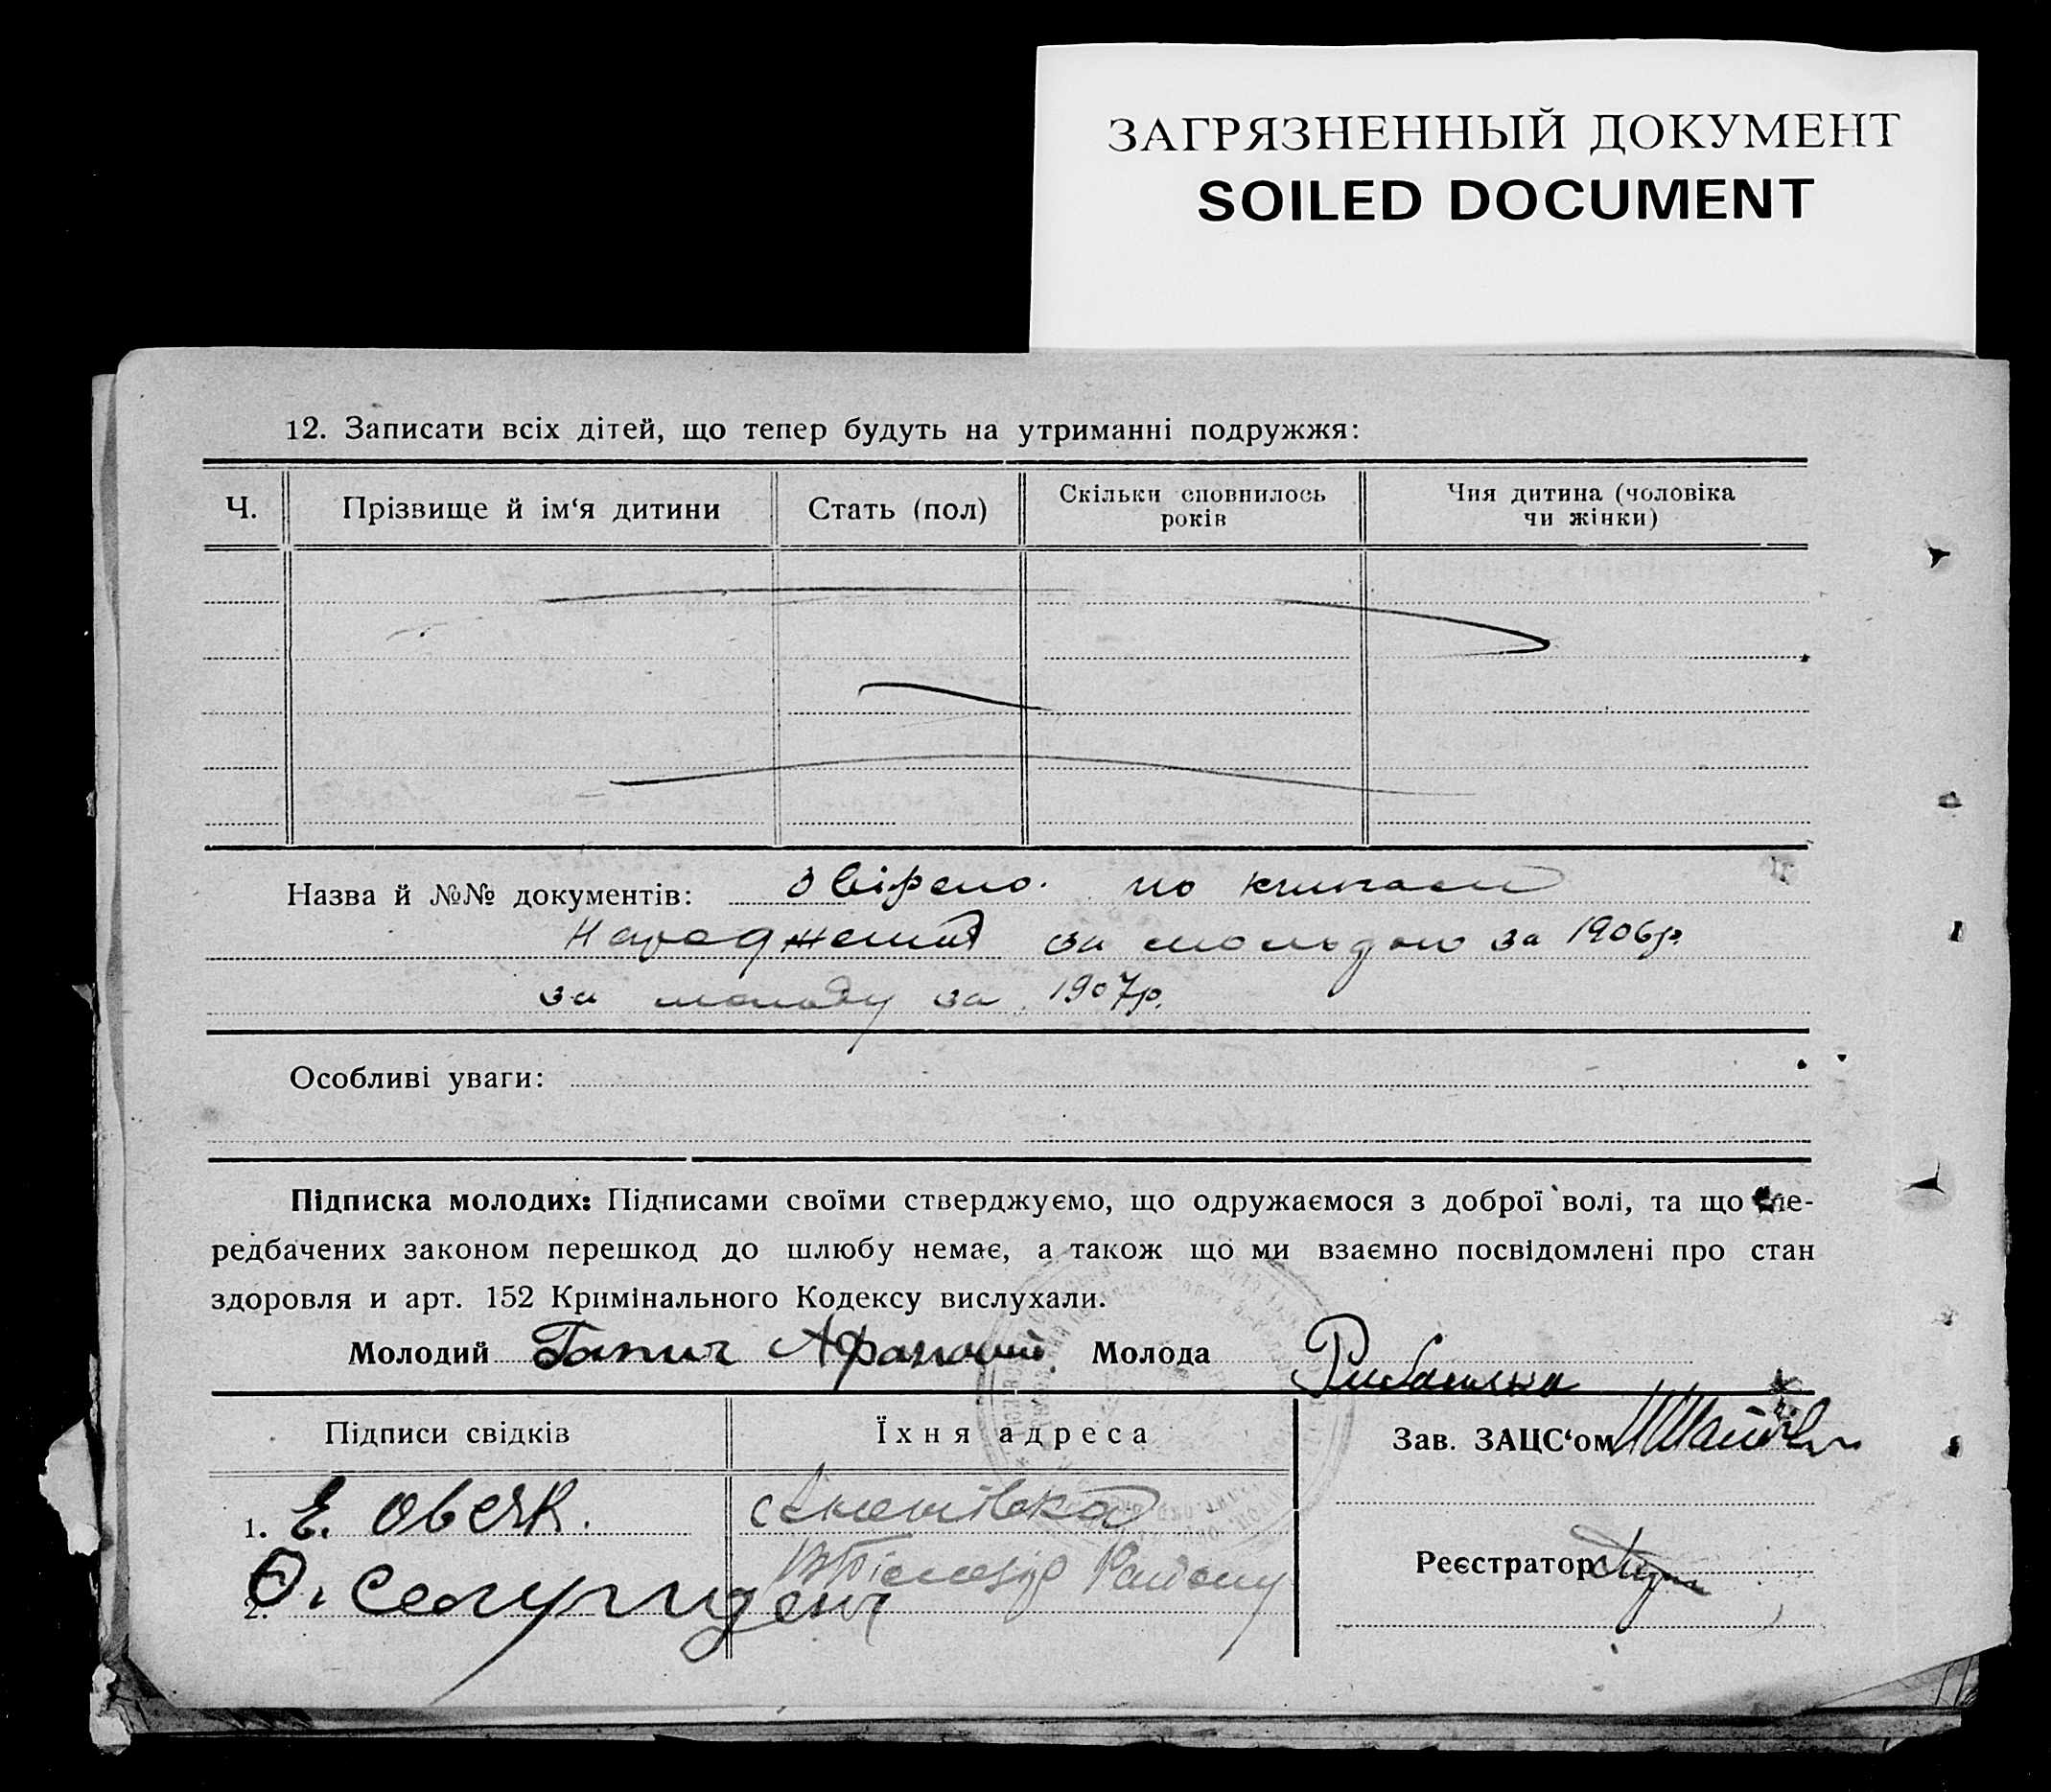 ЗАГРЯЗНЕННЫЙ ДОКУМЕНТ
SOILED DOCUMENT
12. Записати всіх дітей, що тепер будуть на утриманні подружжя:
Ч. Прізвище й ім‘я дитини Стать (пол) Скільки сповнилось років Чия дитина (чоловіка чи жінки)
Назва й №№ документів: Звірено по книгам
Народження за молодого за 1906р.
за молоду за 1907р.
Особливі уваги:
Підписка молодих: Підписами своїми стверджуємо, що одружаємося з доброї волі, та що пе-
редбачених законом перешкод до шлюбу немає, а також що ми взаємно посвідомлені про стан
здоровля и арт. 152 Кримінального Кодексу вислухали.
Молодий Афанасий Молода
Підписи свідків Їхня адреса Зав. ЗАЦС‘ом
1. Е.
2. Району
Реєстратор